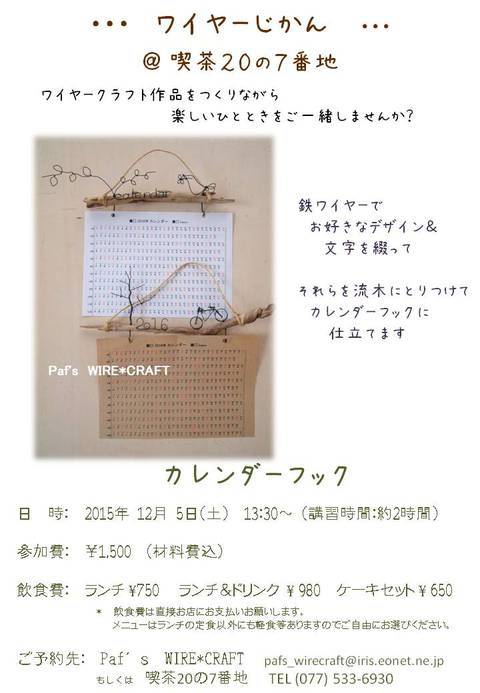 ・・・ ワイヤーじかん ・・・
@ 喫茶20の7番地
ワイヤークラフト作品をつくりながら
楽しいひとときをご一緒しませんか?
鉄ワイヤーで
お好きなデザイン&
文字を綴って
それらを流木にとりつけて
カレンダーフックに
仕立てます
calendar
2016
Paf's WIRE*CRAFT
カレンダーフック
日 時: 2015年 12月 5日(土) 13:30~ (講習時間:約2時間)
参加費: ¥1,500 (材料費込)
飲食費: ランチ¥750 ランチ&ドリンク ¥980 ケーキセット¥650
* 飲食費は直接お店にお支払いお願いします。
メニューはランチの定食以外にも軽食等ありますのでご自由にお選びください。
ご予約先: Paf's WIRE*CRAFT pafs_wirecraft@iris.eonet.ne.jp
もしくは 喫茶20の7番地 TEL (077) 533-6930